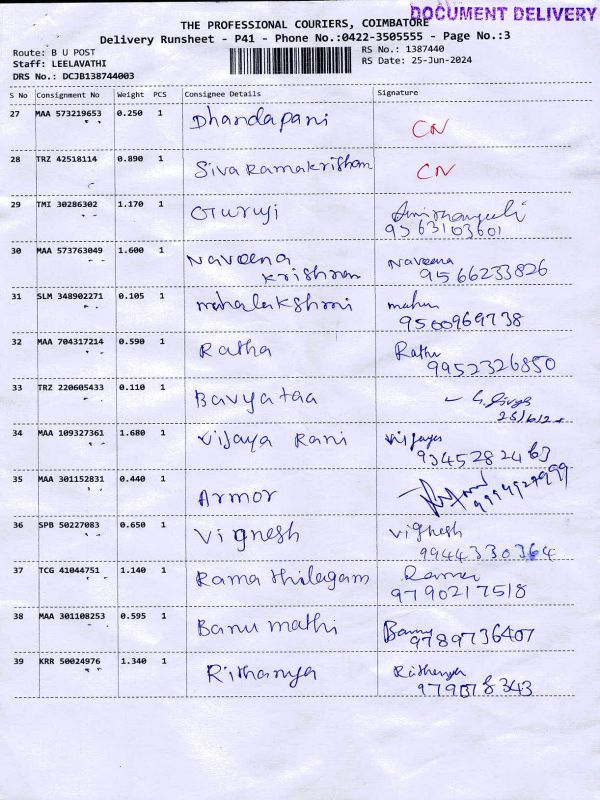 DOCUMENT DELIVERY
THE PROFESSIONAL COURIERS, COIMBATORE
Delivery Runsheet - P41 - Phone No.:0422-3505555 - Page No.:3
Route: B U POST
RS No.: 1387440
Staff: LEELAVATHI
RS Date: 25-Jun-2024
DRS No.: DCJB138744003
S No Consignment No Weight PCS Consignee Details Signature
27 MAA 573219653 0.250 1 Dhandapani CN
28 TRZ 42518114 0.890 1 Sivaramakrishnan CN
29 TMI 30286302 1.170 1 Guruji
9563103601
30 MAA 573763049 1.600 1 Naveena Naveena
krishnan 9566233826
31 SLM 348902271 0.105 1 mahalakshmi mahu
9500969738
32 MAA 704317214 0.590 1 Ratha Rathu
9952326850
33 TRZ 220605433 0.110 1 Bavyataa
34 MAA 109327361 1.680 1 Vijaya Rani
9345282463
35 MAA 301152831 0.440 1 Armor
36 SPB 50227083 0.650 1 Vignesh Vighesh
9944330364
37 TCG 41044751 1.140 1 Rama thilagam Rama
9790217518
38 MAA 301108253 0.595 1 Banu mathi Banu
9789736407
39 KRR 50024976 1.340 1 Rithanya Rithanya